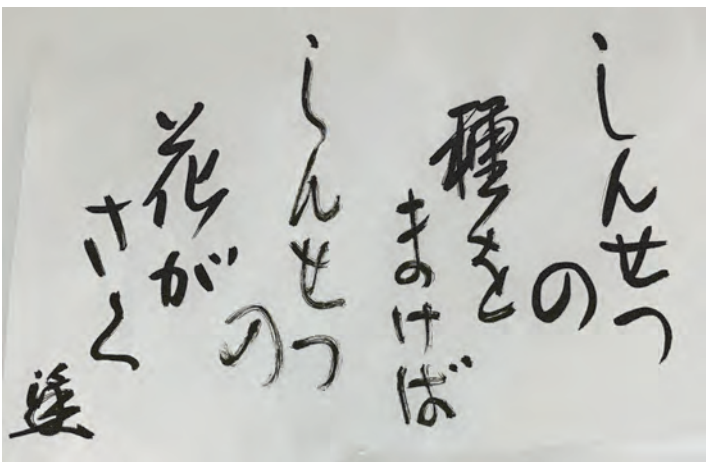 しんせつ
の
種を
まけば
しんせつ
の
花が
さく